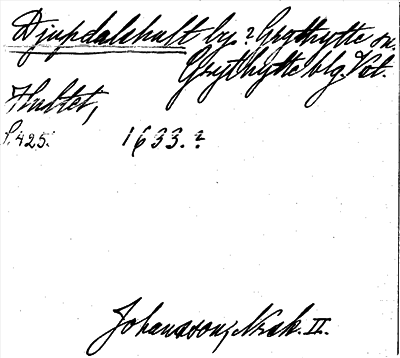 Djupdalshult by. ? Grythytte sn.
Grythytte blg. Vst.
Hultet,
S. 425. 1633. ?
Johansson, Nsk. II.